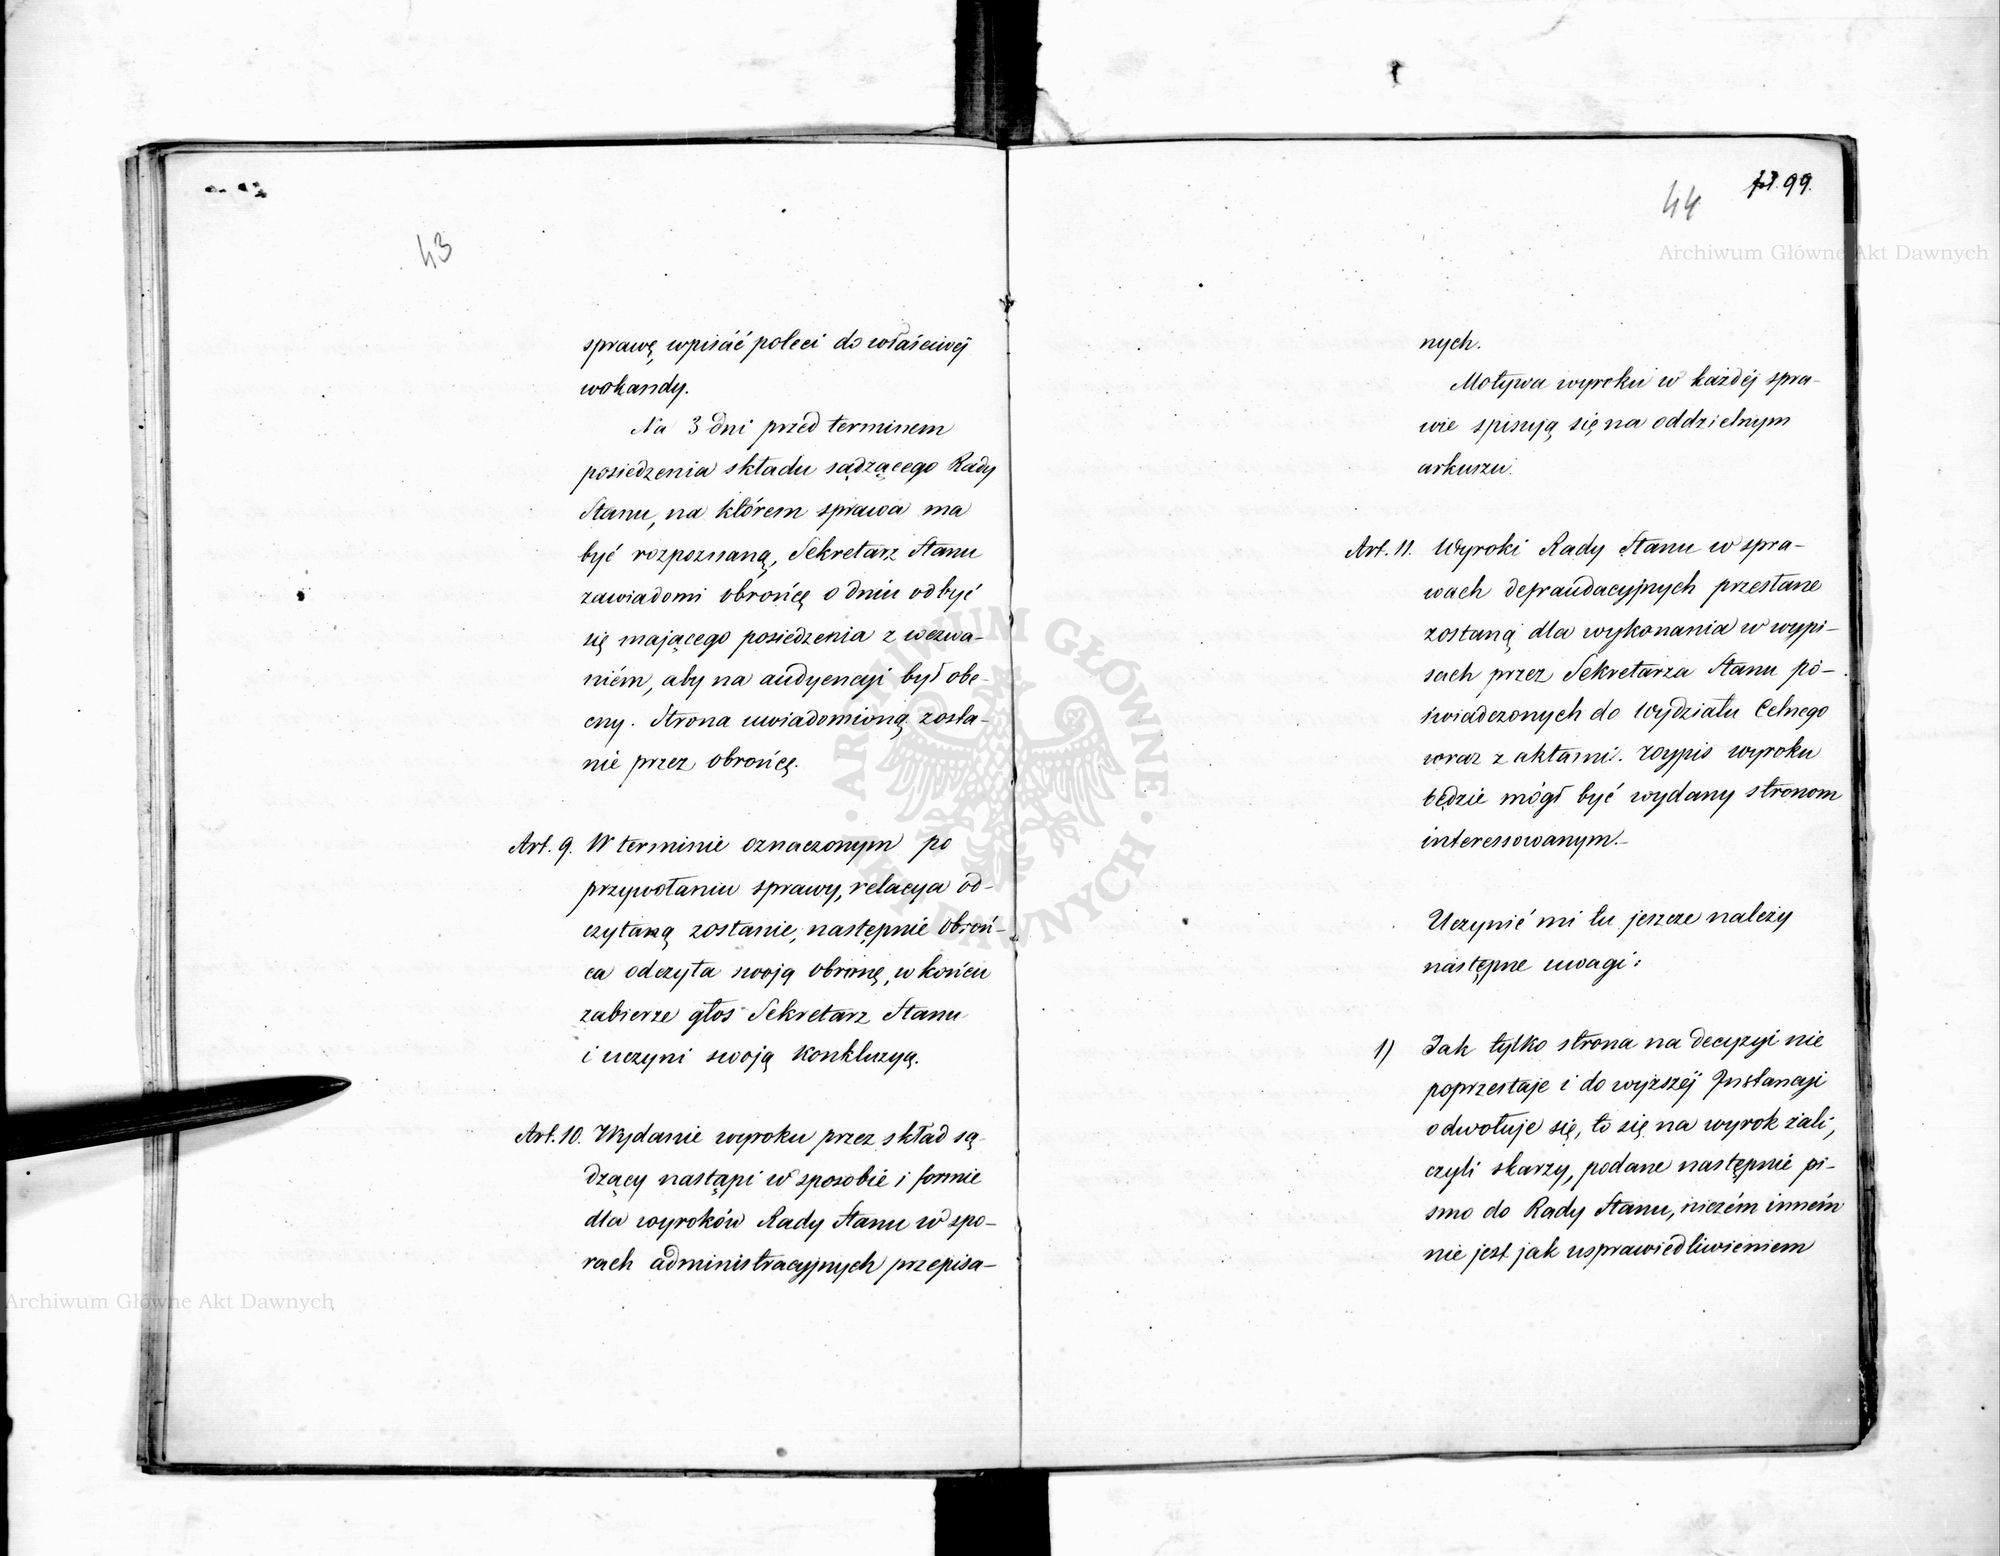 43
sprawę wpisać poleci do właściwéj
wokandy.
Na 3 dni przed terminem
posiedzenia składu sądzącego Rady
Stanu, na którem sprawa ma
być rozpoznaną, Sekretarz Stanu
zawiadomi obrońcę o dniu odbyć
się mającego posiedzenia z wezwa-
niém, aby na audyencyi był obe-
cny. Strona uwiadomioną zosta-
nie przez obrońcę.
Art. 9. W terminie oznaczonym po
przywołaniu sprawy, relacya od-
czytaną zostanie, następnie obroń-
ca odczyta swoją obronę, w końcu
zabierze głos Sekretarz Stanu
i uczyni swoją konkluzyą.
Art. 10. Wydanie wyroku przez skład są-
dzący nastąpi w sposobie i formie
dla wyroków Rady Stanu w spo-
rach administracyjnych przepisa-
44
99.
nych.
Motywa wyroku w każdéj spra-
wie spisują się na oddzielnym
arkuszu.
Art. 11. Wyroki Rady Stanu w spra-
wach defraudacyjnych przesłane
zostaną dla wykonania w wypi-
sach przez Sekretarza Stanu po-
świadczonych do Wydziału Celnego
wraz z aktami. Wypis wyroku
będzie mógł być wydany stronom
interessowanym.-
Uczynić mi tu jeszcze należy
następne uwagi:
1) Jak tylko strona na decyzyi nie
poprzestaje i do wyższéj Instancyi
odwołuje się, to się na wyrok żali,
czyli skarży, podane następnie pi-
smo do Rady Stanu, niczém inném
nie jest jak usprawiedliwieniem
Archiwum Główne Akt Dawnych
Archiwum Główne Akt Dawnych
ARCHIWUM GŁÓWNE AKT DAWNYCH